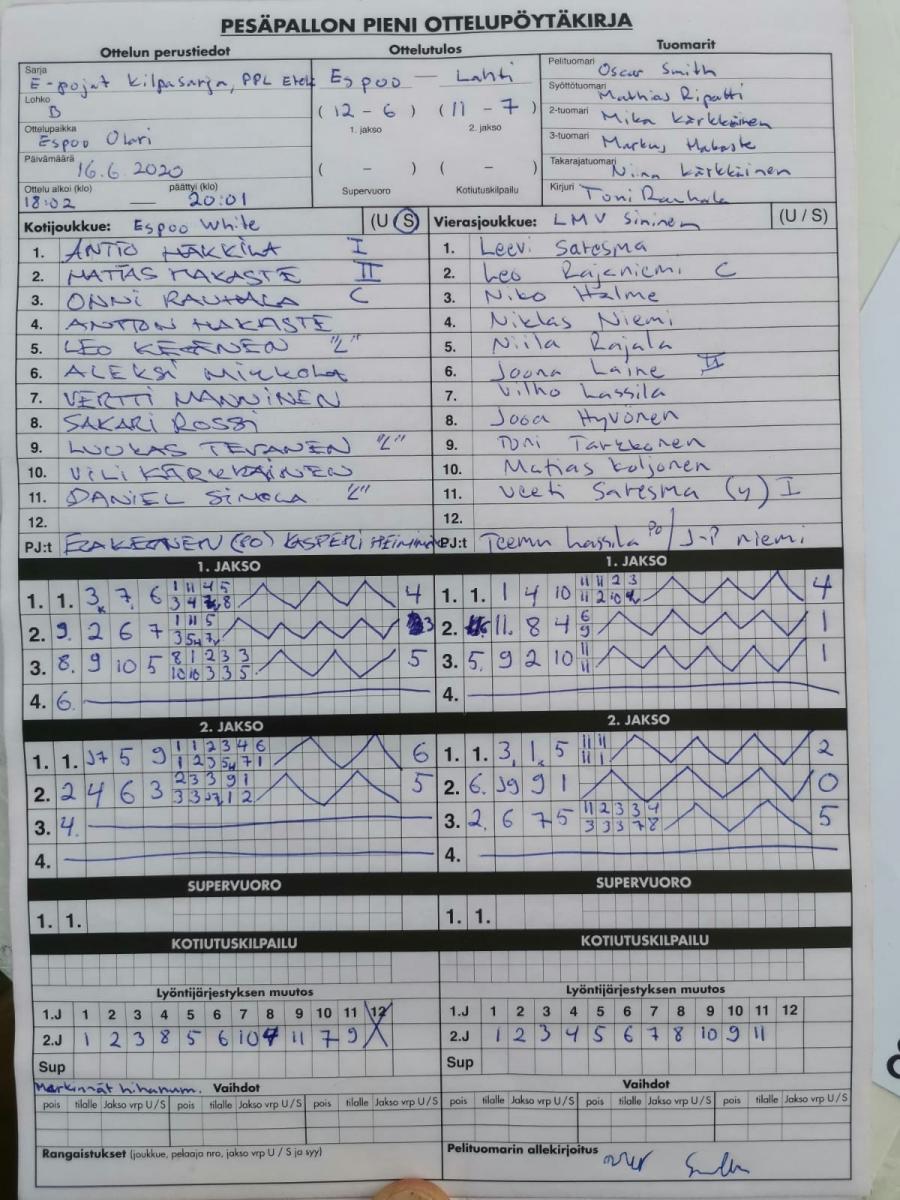 PESÄPALLON PIENI OTTELUPÖYTÄKIRJA
Ottelun perustiedot
Sarja
E-pojat Kilpasarja, PPL Etelä
Lohko
B
Ottelupaikka
Espoo Olari
Päivämäärä
16.6.2020
Ottelu alkoi (klo) päättyi (klo)
18:02 — 20:01
Ottelutulos
Espoo — Lahti
(12 - 6) (11 - 7)
1. jakso 2. jakso
( - ) ( - )
Supervuoro Kotiutuskilpailu
Tuomarit
Pelituomari Oscar Smith
Syöttötuomari Mathias Ripatti
2-tuomari Mika Kärkkäinen
3-tuomari Markus Hakaste
Takarajatuomari Nina Kärkkäinen
Kirjuri Toni Rauhala
Kotijoukkue: Espoo White (U/S)
1. ANTTO HAKKILA I
2. MATIAS HAKASTE II
3. ONNI RAUHALA C
4. ANTTON HAKASTE
5. LEO KETONEN "L"
6. ALEKSI MIKKOLA
7. VERTTI MANNINEN
8. SAKARI ROSSI
9. LUUKAS TEVANEN "L"
10. VILI KÄRKKÄINEN
11. DANIEL SINOLA "L"
12.
PJ:t (PO) KASPERI
Vierasjoukkue: LMV Sininen (U / S)
1. Leevi Saresma
2. Leo Rajaniemi C
3. Niko Halme
4. Niklas Niemi
5. Niila Rajala
6. Joona Laine II
7. Vilho Lassila
8. Jooa Hyvönen
9. Toni Tarkkonen
10. Matias Koljonen
11. Veeti Saresma (y) I
12.
PJ:t Teemu Lassila PO / J-P Niemi
1. JAKSO
1. 1. 3 7 6 4
2. 9 2 6 7 3
3. 8 9 10 5 5
4. 6
1. JAKSO
1. 1. 1 4 10 4
2. 11. 8 4 1
3. 5 9 2 10 1
4.
2. JAKSO
1. 1. J7 5 9 6
2. 2 4 6 3 5
3. 4.
4.
2. JAKSO
1. 1. 3 1 5 2
2. 6. J9 9 1 0
3. 2 6 7 5 5
4.
SUPERVUORO
1. 1.
SUPERVUORO
1. 1.
KOTIUTUSKILPAILU
KOTIUTUSKILPAILU
Lyöntijärjestyksen muutos
1.J 1 2 3 4 5 6 7 8 9 10 11 12
2.J 1 2 3 8 5 6 10 4 11 7 9
Sup
Lyöntijärjestyksen muutos
1.J 1 2 3 4 5 6 7 8 9 10 11 12
2.J 1 2 3 4 5 6 7 8 10 9 11
Sup
Merkinnät hihanum. Vaihdot
pois tilalle Jakso vrp U/S pois tilalle Jakso vrp U/S pois tilalle Jakso vrp U/S
Vaihdot
pois tilalle Jakso vrp U/S pois tilalle Jakso vrp U/S pois tilalle Jakso vrp U/S
Rangaistukset (joukkue, pelaaja nro, jakso vrp U / S ja syy)
Pelituomarin allekirjoitus